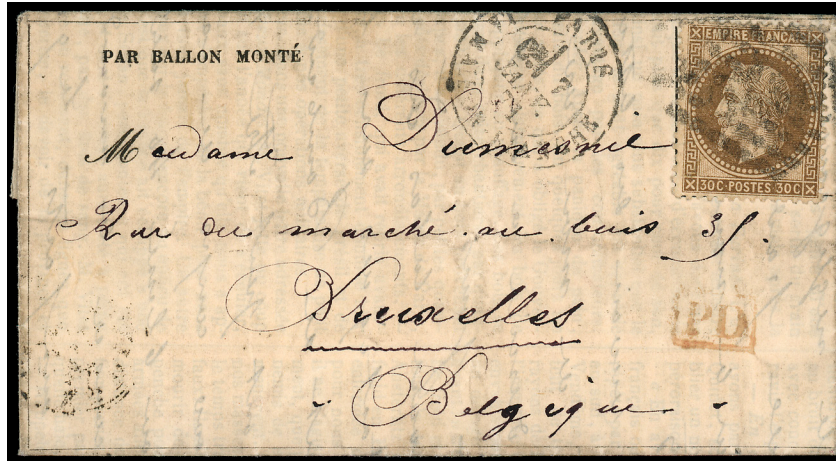 PAR BALLON MONTÉ
PARIS
7
JANV
EMPIRE FRANÇAIS
30C·POSTES·30C
Madame Dumesnil
Rue du marché au bois 35.
Bruxelles
Belgique
PD